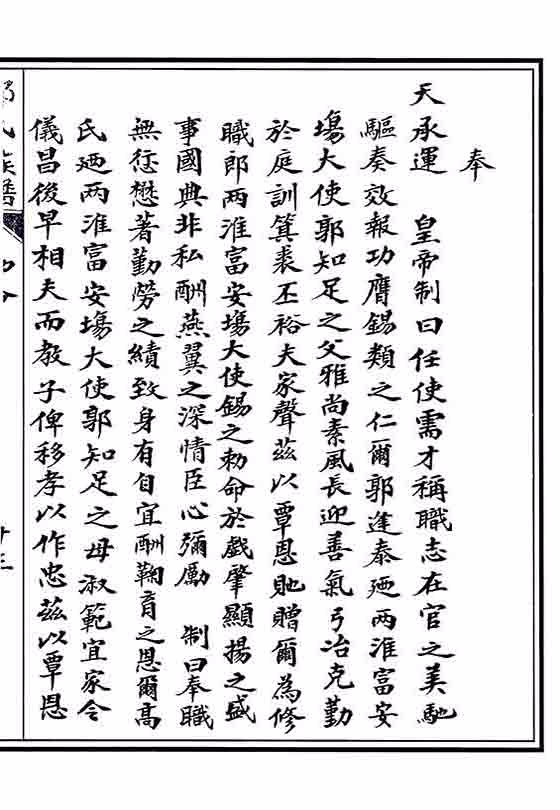 奉
天承運　皇帝制曰任使需才稱職志在官之美馳
驅奏效報功膺錫類之仁爾郭逢泰廼兩淮富安
塲大使郭知足之父雅尚素風長迎善氣弓冶克勤
於庭訓箕裘丕裕夫家聲茲以覃恩貤贈爾為修
職郎兩淮富安塲大使錫之勅命於戲肇顯揚之盛
事國典非私酬燕翼之深情臣心彌勵　制曰奉職
無愆懋著勤勞之績致身有自宜酬鞠育之恩爾高
氏廼兩淮富安塲大使郭知足之母淑範宜家令
儀昌後早相夫而教子俾移孝以作忠茲以覃恩